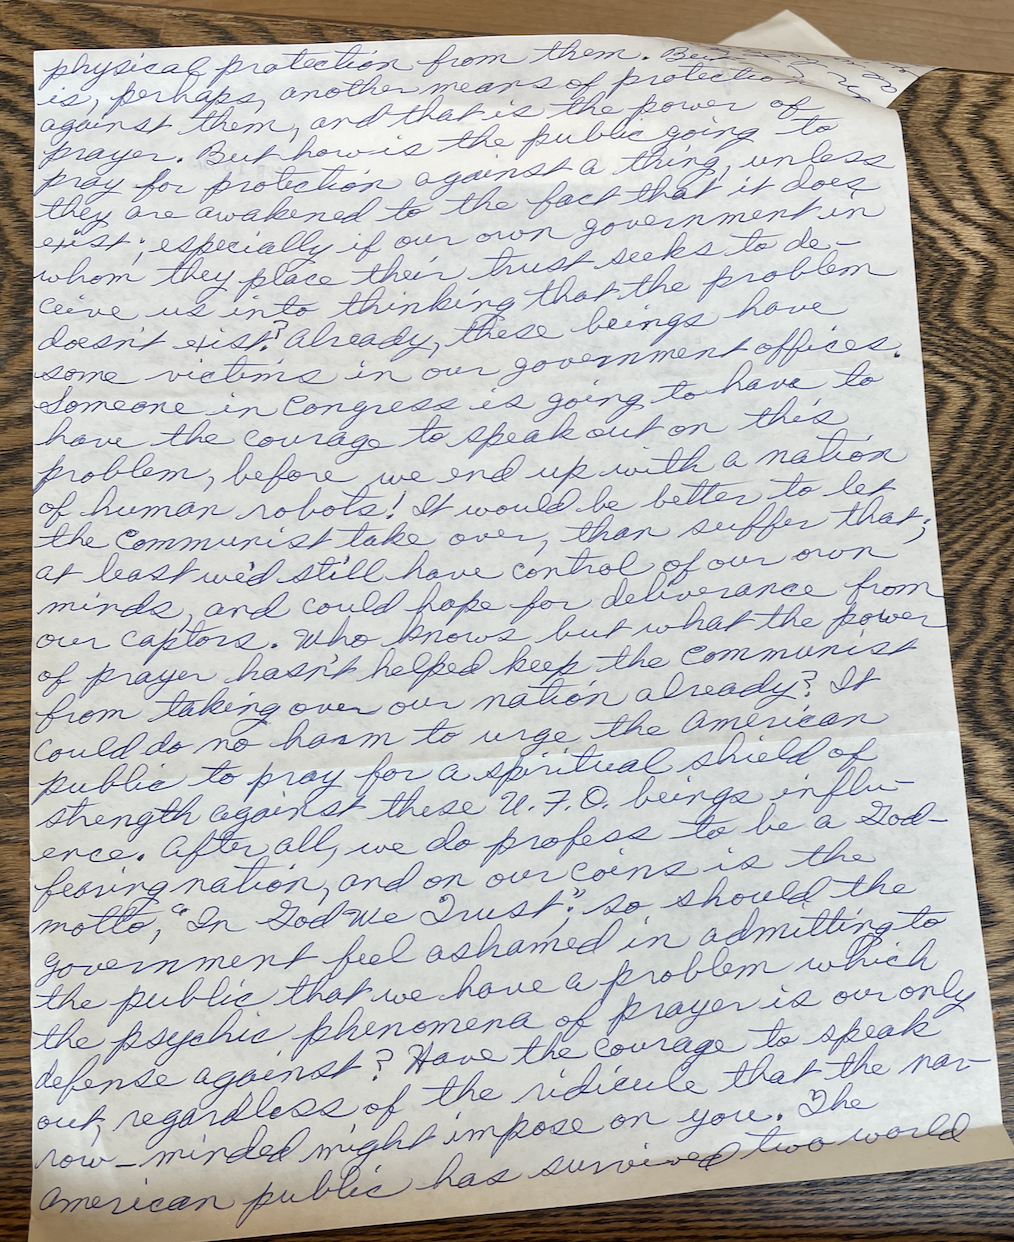 physical protection from them.
is, perhaps, another means of protection
against them, and that is the power of
prayer. But how is the public going to
pray for protection against a thing, unless
they are awakened to the fact that it does
exist; especially if our own government in
whom they place their trust seeks to de-
ceive us into thinking that the problem
doesn't exist? Already, these beings have
some victims in our government offices.
Someone in Congress is going to have to
have the courage to speak out on this
problem, before we end up with a nation
of human robots! It would be better to let
the Communist take over, than suffer that;
at least we'd still have control of our own
minds, and could hope for deliverance from
our captors. Who knows but what the power
of prayer hasn't helped keep the Communist
from taking over our nation already? It
could do no harm to urge the American
public to pray for a spiritual shield of
strength against these U.F.O. beings influ-
ence. After all, we do profess to be a God-
fearing nation, and on our coins is the
motto, "In God We Trust," so should the
government feel ashamed in admitting to
the public that we have a problem which
the psychic phenomena of prayer is our only
defense against? Have the courage to speak
out, regardless of the ridicule that the nar-
row-minded might impose on you. The
American public has survived two world